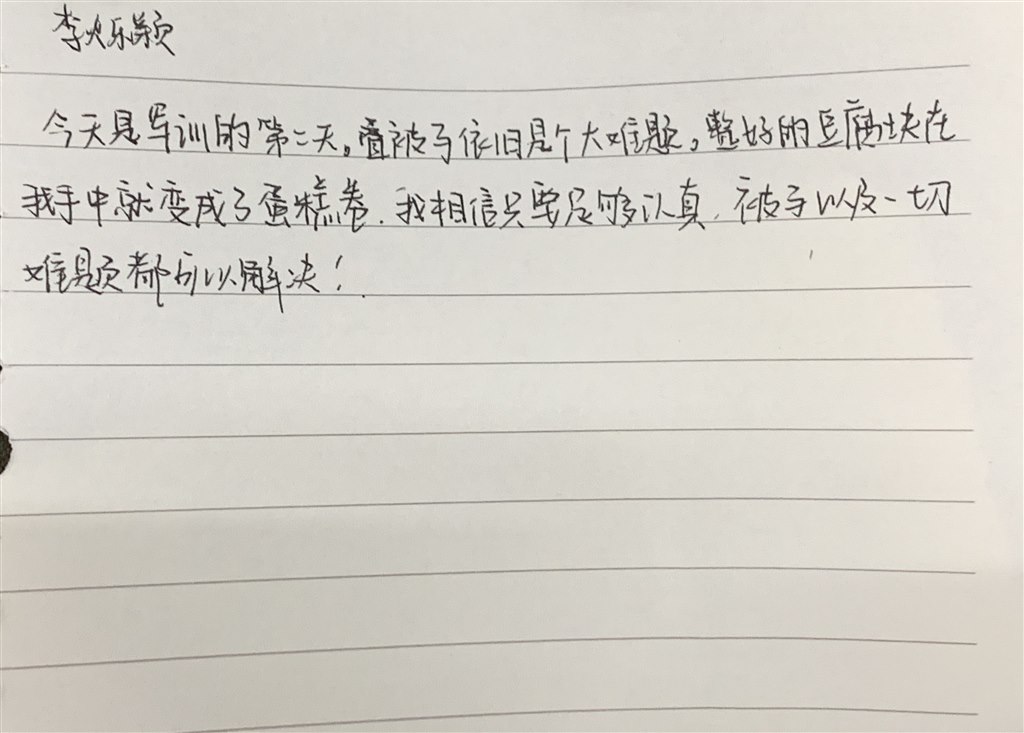 李烁颖
今天是军训的第二天。叠被子依旧是个大难题。整好的豆腐块在
我手中就变成了蛋糕卷.我相信只要足够认真.被子以及一切
难题都可以解决!